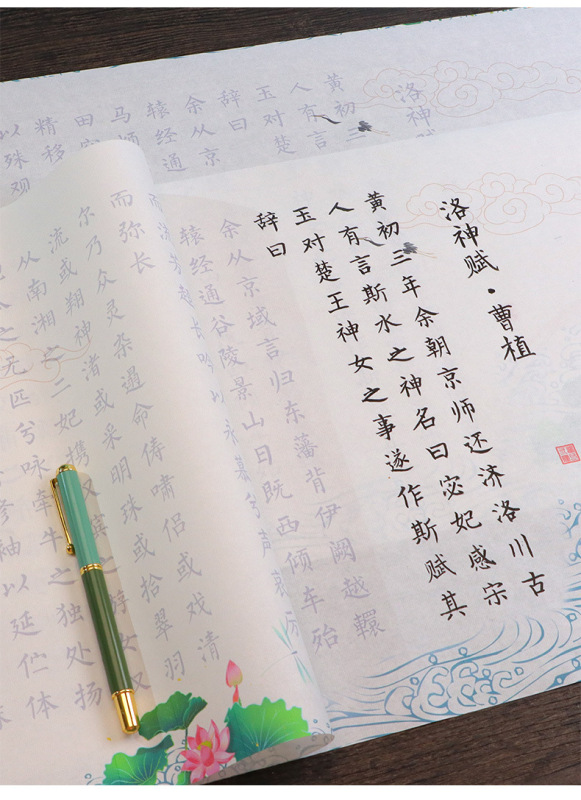 洛神赋
黄初三
人有言
玉对楚
辞曰
余从京
辕经通
精移
以殊观
洛神赋·曹植
黄初三年余朝京师还济洛川古
人有言斯水之神名曰宓妃感宋
玉对楚王神女之事遂作斯赋其
辞曰
余从京域言归东藩背伊阙越轘
辕经通谷陵景山日既西倾车殆
而弥长
尔乃众灵杂遝命俦啸侣或戏清
流或翔神渚或采明珠或拾翠羽
从南湘之二妃携汉滨之游女又
之无匹兮咏牵牛之独处扬
修袖以延伫体